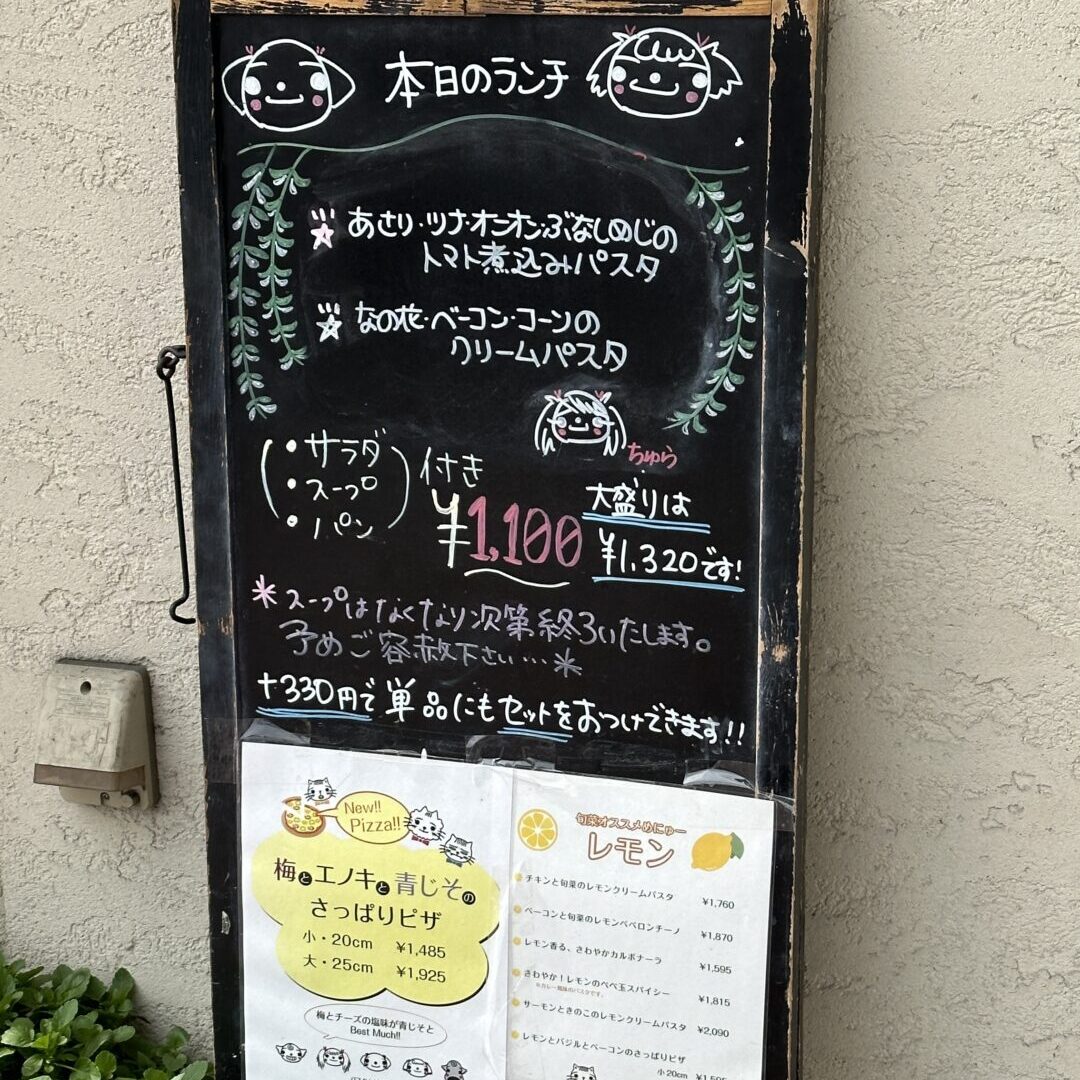 本日のランチ
あさり・ツナ・オニオン・ぶなしめじの
トマト煮込みパスタ
なの花・ベーコン・コーンの
クリームパスタ
ちゅら
(・サラダ
・スープ
・パン) 付き
¥1,100
大盛りは
¥1,320です!
*スープはなくなり次第終了いたします。
予めご容赦下さい…*
+330円で単品にもセットをおつけできます!!
New!!
Pizza!!
梅とエノキと青じその
さっぱりピザ
小・20cm ¥1,485
大・25cm ¥1,925
梅とチーズの塩味が青じそと
Best Much!!
旬菜オススメめにゅー
レモン
チキンと旬菜のレモンクリームパスタ ¥1,760
ベーコンと旬菜のレモンペペロンチーノ ¥1,870
レモン香る、さわやかカルボナーラ ¥1,595
さわやか!レモンのペペ玉スパイシー ¥1,815
※カレー風味のパスタです。
サーモンときのこのレモンクリームパスタ ¥2,090
レモンとバジルとベーコンのさっぱりピザ
小20cm